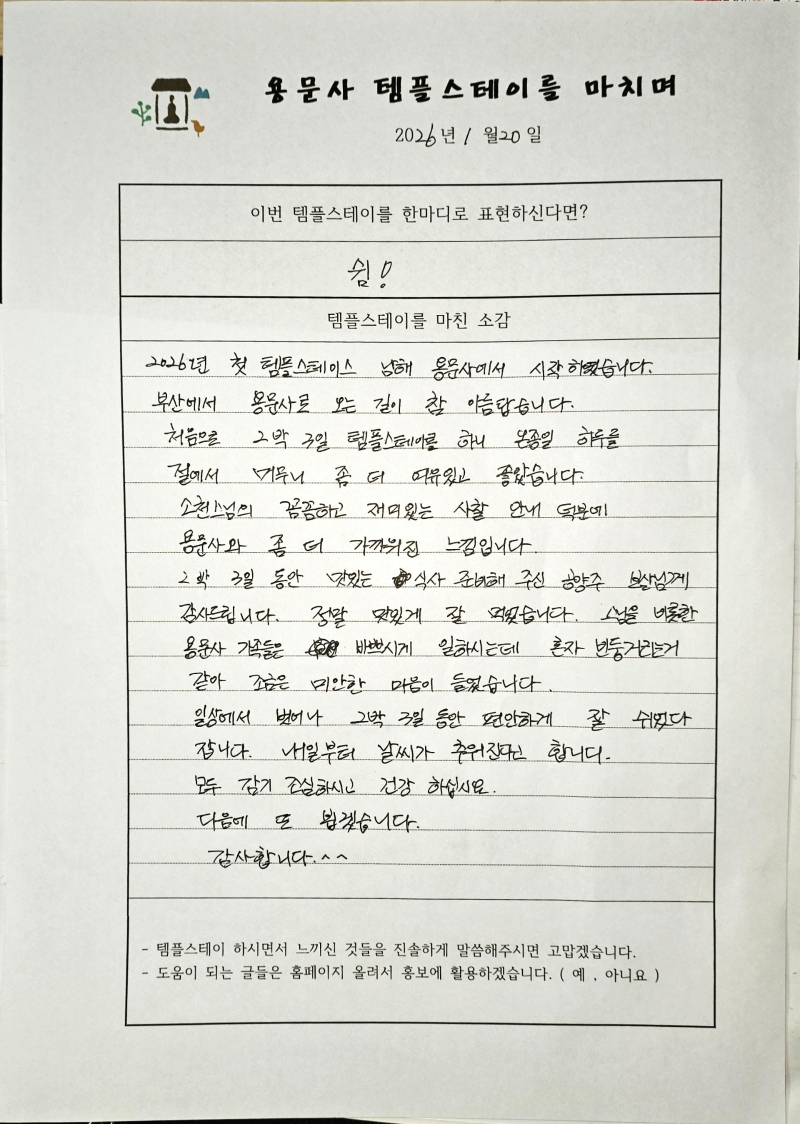 용문사 템플스테이를 마치며
2026년 1월20일
이번 템플스테이를 한마디로 표현하신다면?
쉼!
템플스테이를 마친 소감
2026년 첫 템플스테이스 남해 용문사에서 시작하였습니다.
부산에서 용문사로 오는 길이 참 아름답습니다.
처음으로 2박 3일 템플스테이를 하니 온종일 하루를
절에서 머무니 좀 더 여유있고 좋았습니다.
소현스님의 꼼꼼하고 재미있는 사찰 안내 덕분에
용문사와 좀 더 가까워진 느낌입니다.
2박 3일 동안 맛있는 식사 준비해 주신 공양주 보살님께
감사드립니다. 정말 맛있게 잘 먹었습니다. 스님을 비롯한
용문사 가족들은 바쁘시게 일하시는데 혼자 빈둥거리는거
같아 조금은 미안한 마음이 들었습니다.
일상에서 벗어나 2박 3일 동안 편안하게 잘 쉬었다
갑니다. 내일부터 날씨가 추워진다고 합니다.
모두 감기 조심하시고 건강 하십시요.
다음에 또 뵙겠습니다.
감사합니다.^^
- 템플스테이 하시면서 느끼신 것들을 진솔하게 말씀해주시면 고맙겠습니다.
- 도움이 되는 글들은 홈페이지 올려서 홍보에 활용하겠습니다. ( 예 , 아니요 )